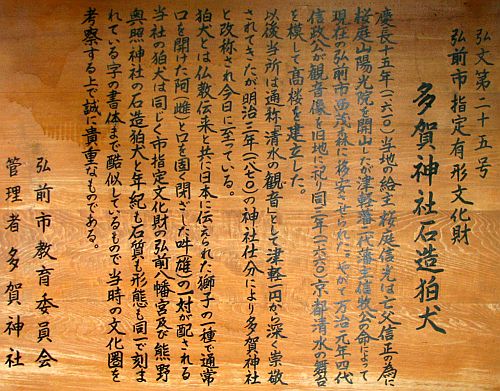 弘文第二十五号
弘前市指定有形文化財
多賀神社石造狛犬
慶長十五年(一六一〇)当地の給主桜庭信光は亡父信正の為に
桜庭山陽光院を開山したが津軽藩二代藩主信牧公の命によって
現在の弘前市西茂森に移安させられた。やがて万治元年四代
信政公が観音像を旧地に祀り同三年(一六六〇)京都清水の舞台
を模して髙楼を建立した。
以後当所は通称清水の観音として津軽一円から深く崇敬
されてきたが明治三年(一八七〇)の神社仕分により多賀神社
と改称され今日に至っている。
狛犬とは仏教伝来と共に日本に伝えられた獅子の一種で通常
口を開けた阿(雌)と口を固く閉ざした吽(雄)の一対が配される
当社の狛犬は同じく市指定文化財の弘前八幡宮及び熊野
奥照神社の石造狛犬と年紀も石質も形態も同一で刻ま
れている字の書体まで酷似しているもので当時の文化圏を
考察する上で誠に貴重なものである。
弘前市教育委員会
管理者多賀神社